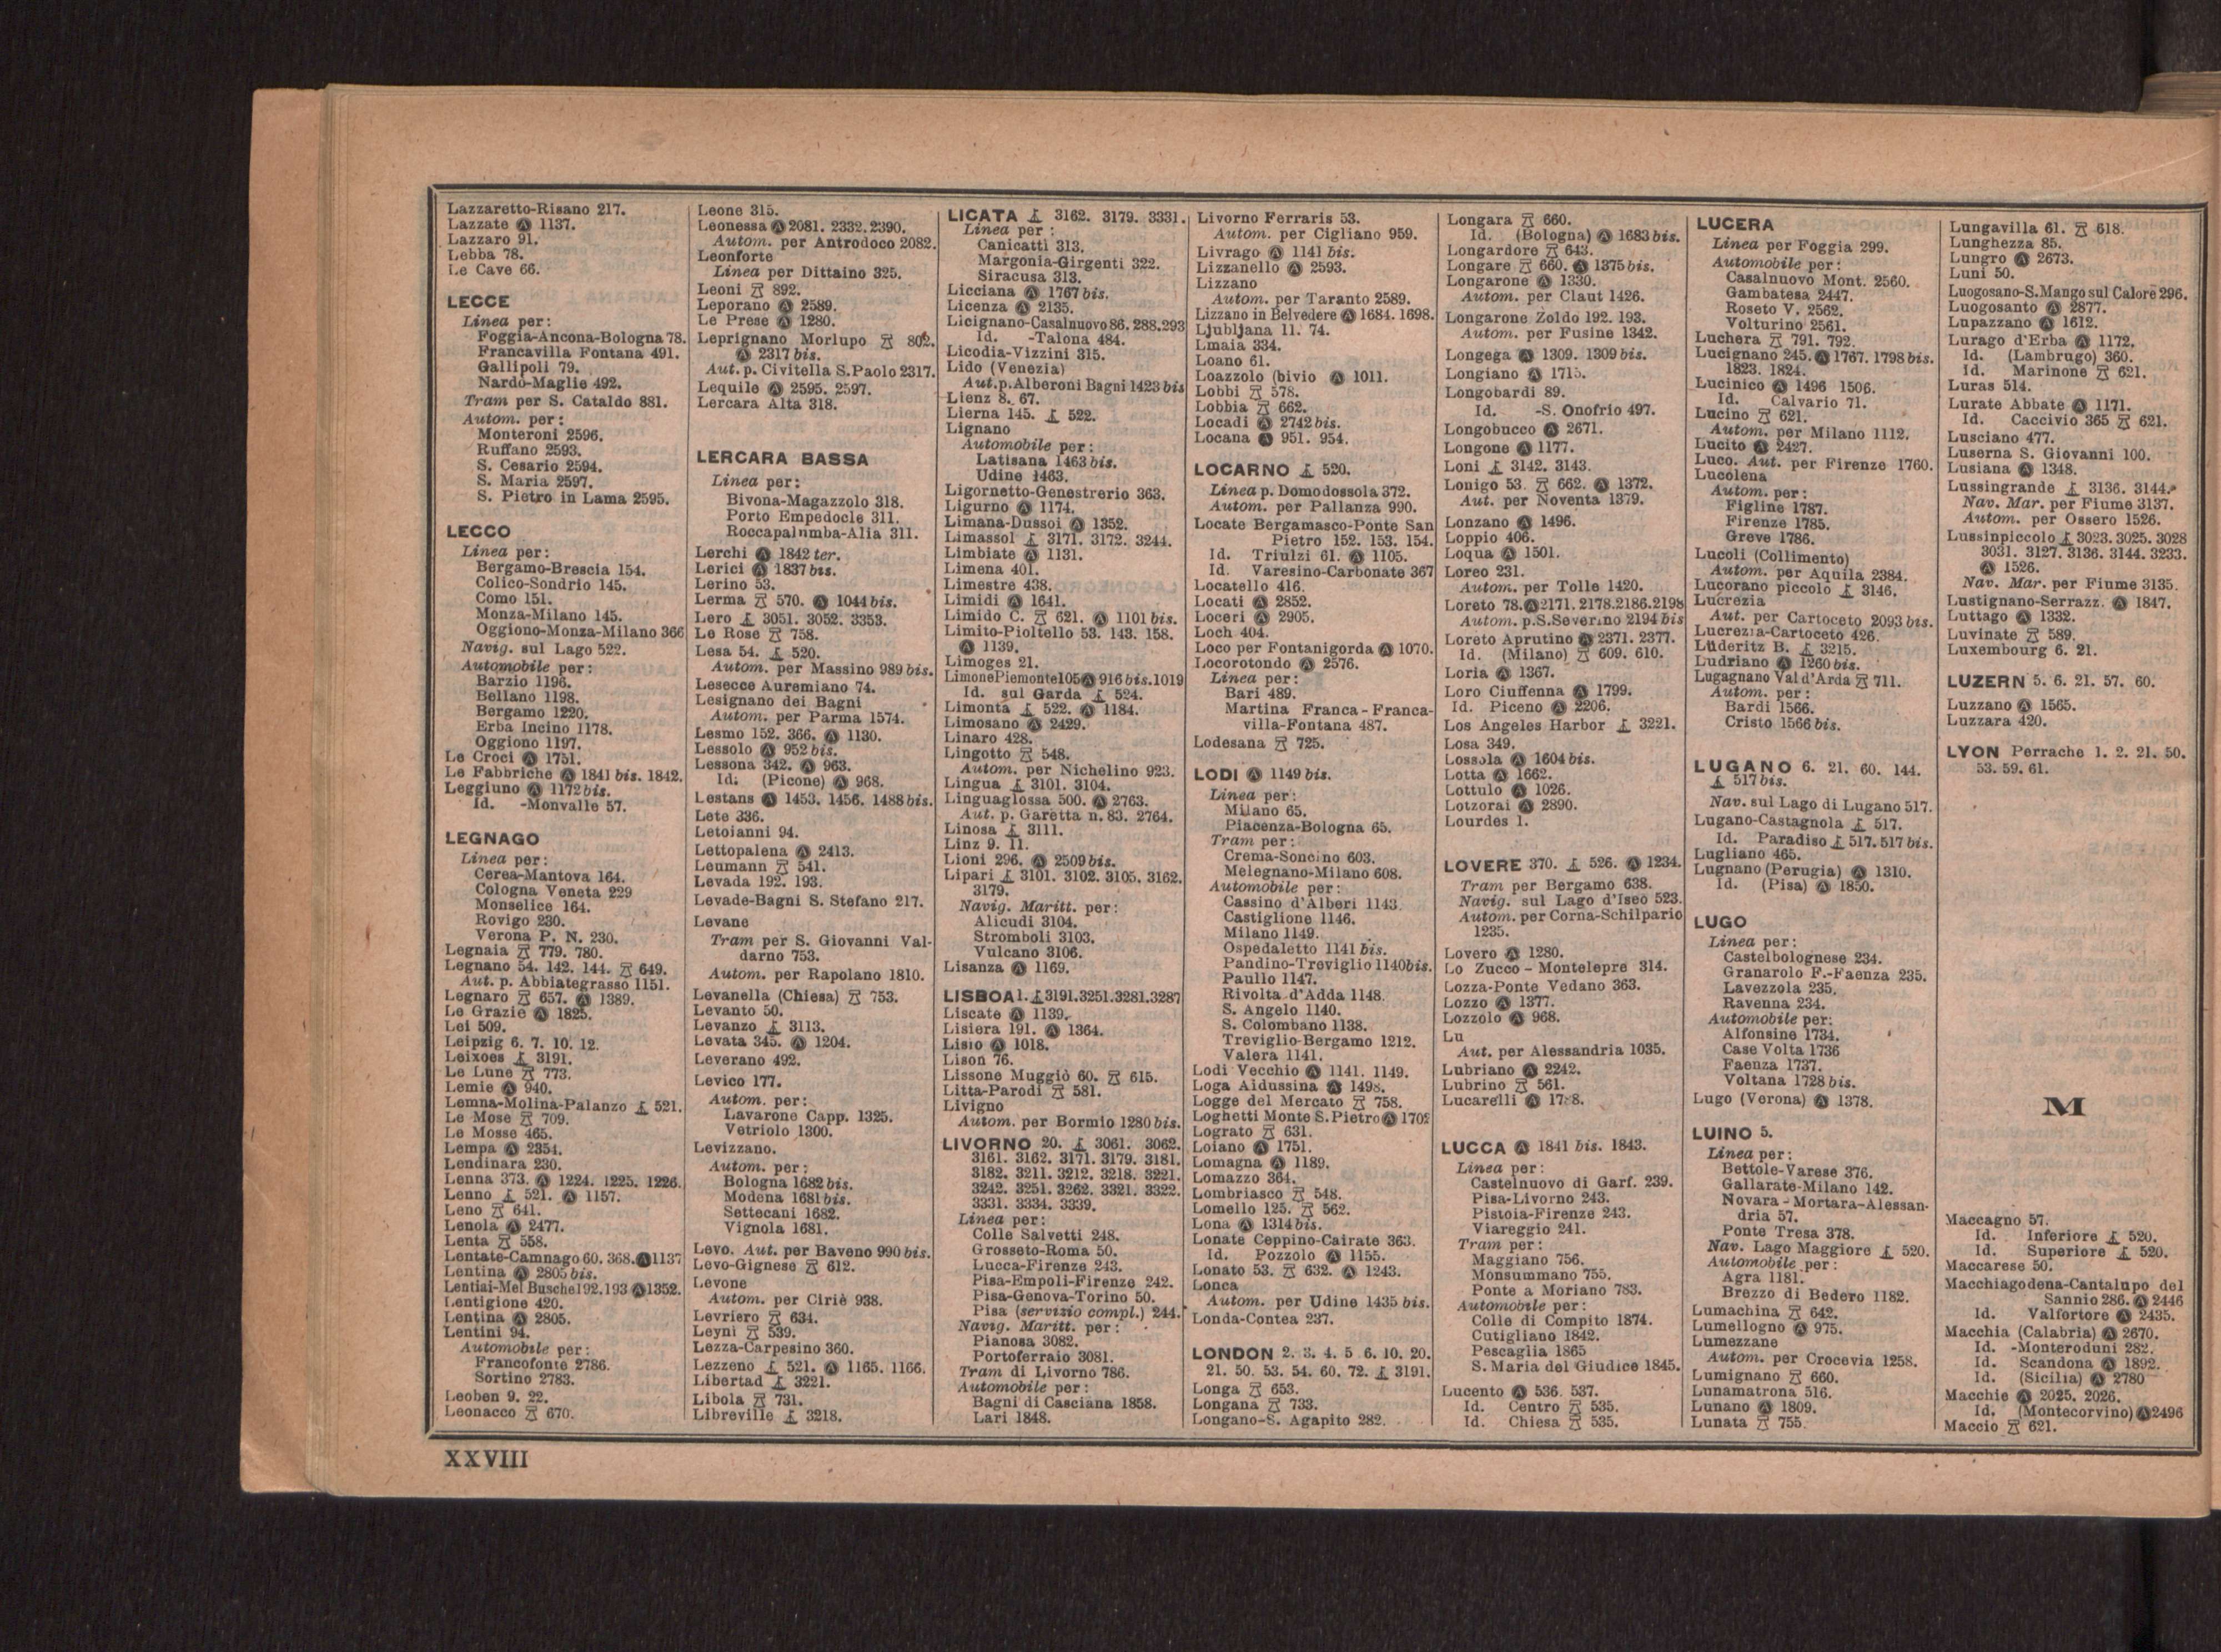 Lazzaretto-Risano 217.
Lazzate Ⓐ 1137.
Lazzaro 91.
Lebba 78.
Le Cave 66.
LECCE
Linea per:
Foggia-Ancona-Bologna 78.
Francavilla Fontana 491.
Gallipoli 79.
Nardò-Maglie 492.
Tram per S. Cataldo 881.
Autom. per:
Monteroni 2596.
Ruffano 2593.
S. Cesario 2594.
S. Maria 2597.
S. Pietro in Lama 2595.
LECCO
Linea per:
Bergamo-Brescia 154.
Colico-Sondrio 145.
Como 151.
Monza-Milano 145.
Oggiono-Monza-Milano 366
Navig. sul Lago 522.
Automobile per:
Barzio 1196.
Bellano 1198.
Bergamo 1220.
Erba Incino 1178.
Oggiono 1197.
Le Croci Ⓐ 1751.
Le Fabbriche Ⓐ 1841 bis. 1842.
Leggiuno Ⓐ 1172 bis.
Id. -Monvalle 57.
LEGNAGO
Linea per:
Cerea-Mantova 164.
Cologna Veneta 229
Monselice 164.
Rovigo 230.
Verona P. N. 230.
Legnaia 779. 780.
Legnano 54. 142. 144. 649.
Aut. p. Abbiategrasso 1151.
Legnaro 657. Ⓐ 1389.
Le Grazie Ⓐ 1825.
Lei 509.
Leipzig 6. 7. 10. 12.
Leixoes 3191.
Le Lune 773.
Lemie Ⓐ 940.
Lemna-Molina-Palanzo 521.
Le Mose 709.
Le Mosse 465.
Lempa Ⓐ 2354.
Lendinara 230.
Lenna 373. Ⓐ 1224. 1225. 1226.
Lenno 521. Ⓐ 1157.
Leno 641.
Lenola Ⓐ 2477.
Lenta 558.
Lentate-Camnago 60. 368. Ⓐ 1137
Lentina Ⓐ 2805 bis.
Lentiai-Mel Busche 192. 193 Ⓐ 1352.
Lentigione 420.
Lentina Ⓐ 2805.
Lentini 94.
Automobile per:
Francofonte 2786.
Sortino 2783.
Leoben 9. 22.
Leonacco 670.
Leone 315.
Leonessa Ⓐ 2081. 2332. 2390.
Autom. per Antrodoco 2082.
Leonforte
Linea per Dittaino 325.
Leoni 892.
Leporano Ⓐ 2589.
Le Prese Ⓐ 1280.
Leprignano Morlupo 802.
Ⓐ 2317 bis.
Aut. p. Civitella S. Paolo 2317.
Lequile Ⓐ 2595. 2597.
Lercara Alta 318.
LERCARA BASSA
Linea per:
Bivona-Magazzolo 318.
Porto Empedocle 311.
Roccapalumba-Alia 311.
Lerchi Ⓐ 1842 ter.
Lerici Ⓐ 1837 bis.
Lerino 53.
Lerma 570. Ⓐ 1044 bis.
Lero 3051. 3052. 3353.
Le Rose 758.
Lesa 54. 520.
Autom. per Massino 989 bis.
Lesecce Auremiano 74.
Lesignano dei Bagni
Autom. per Parma 1574.
Lesmo 152. 366. Ⓐ 1130.
Lessolo Ⓐ 952 bis.
Lessona 342. Ⓐ 963.
Id. (Picone) Ⓐ 968.
Lestans Ⓐ 1453. 1456. 1488 bis.
Lete 336.
Letoianni 94.
Lettopalena Ⓐ 2413.
Leumann 541.
Levada 192. 193.
Levade-Bagni S. Stefano 217.
Levane
Tram per S. Giovanni Val-
darno 753.
Autom. per Rapolano 1810.
Levanella (Chiesa) 753.
Levanto 50.
Levanzo 3113.
Levata 345. Ⓐ 1204.
Leverano 492.
Levico 177.
Autom. per:
Lavarone Capp. 1325.
Vetriolo 1300.
Levizzano.
Autom. per:
Bologna 1682 bis.
Modena 1681 bis.
Settecani 1682.
Vignola 1681.
Levo. Aut. per Baveno 990 bis.
Levo-Gignese 612.
Levone
Autom. per Ciriè 938.
Levriero 634.
Leyni 539.
Lezza-Carpesino 360.
Lezzeno 521. Ⓐ 1165. 1166.
Libertad 3221.
Libola 731.
Libreville 3218.
LICATA 3162. 3179. 3331.
Linea per:
Canicattì 313.
Margonia-Girgenti 322.
Siracusa 313.
Licciana Ⓐ 1767 bis.
Licenza Ⓐ 2135.
Licignano-Casalnuovo 86. 288. 293
Id. -Talona 484.
Licodia-Vizzini 315.
Lido (Venezia)
Aut. p. Alberoni Bagni 1423 bis
Lienz 8. 67.
Lierna 145. 522.
Lignano
Automobile per:
Latisana 1463 bis.
Udine 1463.
Ligornetto-Genestrerio 363.
Ligurno Ⓐ 1174.
Limana-Dussoi Ⓐ 1352.
Limassol 3171. 3172. 3244.
Limbiate Ⓐ 1131.
Limena 401.
Limestre 438.
Limidi Ⓐ 1641.
Limido C. 621. Ⓐ 1101 bis.
Limito-Pioltello 53. 143. 158.
Ⓐ 1139.
Limoges 21.
Limone Piemonte 105 Ⓐ 916 bis. 1019
Id. sul Garda 524.
Limonta 522. Ⓐ 1184.
Limosano Ⓐ 2429.
Linaro 428.
Lingotto 548.
Autom. per Nichelino 923.
Lingua 3101. 3104.
Linguaglossa 500. Ⓐ 2763.
Aut. p. Garetta n. 83. 2764.
Linosa 3111.
Linz 9. 11.
Lioni 296. Ⓐ 2509 bis.
Lipari 3101. 3102. 3105. 3162.
3179.
Navig. Maritt. per:
Alicudi 3104.
Stromboli 3103.
Vulcano 3106.
Lisanza Ⓐ 1169.
LISBOA 1. 3191. 3251. 3281. 3287
Liscate Ⓐ 1139.
Lisiera 191. Ⓐ 1364.
Lisio Ⓐ 1018.
Lison 76.
Lissone Muggiò 60. 615.
Litta-Parodi 581.
Livigno
Autom. per Bormio 1280 bis.
LIVORNO 20. 3061. 3062.
3161. 3162. 3171. 3179. 3181.
3182. 3211. 3212. 3218. 3221.
3242. 3251. 3262. 3321. 3322.
3331. 3334. 3339.
Linea per:
Colle Salvetti 248.
Grosseto-Roma 50.
Lucca-Firenze 243.
Pisa-Empoli-Firenze 242.
Pisa-Genova-Torino 50.
Pisa (servizio compl.) 244.
Navig. Maritt. per:
Pianosa 3082.
Portoferraio 3081.
Tram di Livorno 786.
Automobile per:
Bagni di Casciana 1858.
Lari 1848.
Livorno Ferraris 53.
Autom. per Cigliano 959.
Livrago Ⓐ 1141 bis.
Lizzanello Ⓐ 2593.
Lizzano
Autom. per Taranto 2589.
Lizzano in Belvedere Ⓐ 1684. 1698.
Ljubljana 11. 74.
Lmaia 334.
Loano 61.
Loazzolo (bivio Ⓐ 1011.
Lobbi 578.
Lobbia 662.
Locadi Ⓐ 2742 bis.
Locana Ⓐ 951. 954.
LOCARNO 520.
Linea p. Domodossola 372.
Autom. per Pallanza 990.
Locate Bergamasco-Ponte San
Pietro 152. 153. 154.
Id. Triulzi 61. Ⓐ 1105.
Id. Varesino-Carbonate 367
Locatello 416.
Locati Ⓐ 2852.
Loceri Ⓐ 2905.
Loch 404.
Loco per Fontanigorda Ⓐ 1070.
Locorotondo Ⓐ 2576.
Linea per:
Bari 489.
Martina Franca-Franca-
villa-Fontana 487.
Lodesana 725.
LODI Ⓐ 1149 bis.
Linea per:
Milano 65.
Piacenza-Bologna 65.
Tram per:
Crema-Soncino 603.
Melegnano-Milano 608.
Automobile per:
Cassino d'Alberi 1143
Castiglione 1146.
Milano 1149.
Ospedaletto 1141 bis.
Pandino-Treviglio 1140 bis.
Paullo 1147.
Rivolta d'Adda 1148.
S. Angelo 1140.
S. Colombano 1138.
Treviglio-Bergamo 1212.
Valera 1141.
Lodi Vecchio Ⓐ 1141. 1149.
Loga Aidussina Ⓐ 1498.
Logge del Mercato 758.
Loghetti Monte S. Pietro Ⓐ 1702
Lograto 631.
Loiano Ⓐ 1751.
Lomagna Ⓐ 1189.
Lomazzo 364.
Lombriasco 548.
Lomello 125. 562.
Lona Ⓐ 1314 bis.
Lonate Ceppino-Cairate 363.
Id. Pozzolo Ⓐ 1155.
Lonato 53. 632. Ⓐ 1243.
Lonca
Autom. per Udine 1435 bis.
Londa-Contea 237.
LONDON 2. 3. 4. 5 6. 10. 20.
21. 50. 53. 54. 60. 72. 3191.
Longa 653.
Longana 733.
Longano-S. Agapito 282.
Longara 660.
Id. (Bologna) Ⓐ 1683 bis.
Longardore 643.
Longare 660. Ⓐ 1375 bis.
Longarone Ⓐ 1330.
Autom. per Claut 1426.
Longarone Zoldo 192. 193.
Autom. per Fusine 1342.
Longega Ⓐ 1309. 1309 bis.
Longiano Ⓐ 1715.
Longobardi 89.
Id. -S. Onofrio 497.
Longobucco Ⓐ 2671.
Longone Ⓐ 1177.
Loni 3142. 3143.
Lonigo 53. 662. Ⓐ 1372.
Aut. per Noventa 1379.
Lonzano Ⓐ 1496.
Loppio 406.
Loqua Ⓐ 1501.
Loreo 231.
Autom. per Tolle 1420.
Loreto 78. Ⓐ 2171. 2178. 2186. 2198
Autom. p. S. Severino 2194 bis
Loreto Aprutino Ⓐ 2371. 2377.
Id. (Milano) 609. 610.
Loria Ⓐ 1367.
Loro Ciuffenna Ⓐ 1799.
Id. Piceno Ⓐ 2206.
Los Angeles Harbor 3221.
Losa 349.
Lossola Ⓐ 1604 bis.
Lotta Ⓐ 1662.
Lottulo Ⓐ 1026.
Lotzorai Ⓐ 2890.
Lourdes 1.
LOVERE 370. 526. Ⓐ 1234.
Tram per Bergamo 638.
Navig. sul Lago d'Iseo 523.
Autom. per Corna-Schilpario
1235.
Lovero Ⓐ 1280.
Lo Zucco-Montelepre 314.
Lozza-Ponte Vedano 363.
Lozzo Ⓐ 1377.
Lozzolo Ⓐ 968.
Lu
Aut. per Alessandria 1035.
Lubriano Ⓐ 2242.
Lubrino 561.
Lucarelli Ⓐ
LUCCA Ⓐ 1841 bis. 1843.
Linea per:
Castelnuovo di Garf. 239.
Pisa-Livorno 243.
Pistoia-Firenze 243.
Viareggio 241.
Tram per:
Maggiano 756.
Monsummano 755.
Ponte a Moriano 783.
Automobile per:
Colle di Compito 1874.
Cutigliano 1842.
Pescaglia 1865
S. Maria del Giudice 1845.
Lucento Ⓐ 536. 537.
Id. Centro 535.
Id. Chiesa 535.
LUCERA
Linea per Foggia 299.
Automobile per:
Casalnuovo Mont. 2560.
Gambatesa 2447.
Roseto V. 2562.
Volturino 2561.
Luchera 791. 792.
Lucignano 245. Ⓐ 1767. 1798 bis.
1823. 1824.
Lucinico Ⓐ 1496 1506.
Id. Calvario 71.
Lucino 621.
Autom. per Milano 1112.
Lucito Ⓐ 2427.
Luco. Aut. per Firenze 1760.
Lucolena
Autom. per:
Figline 1787.
Firenze 1785.
Greve 1786.
Lucoli (Collimento)
Autom. per Aquila 2384.
Lucorano piccolo 3146.
Lucrezia
Aut. per Cartoceto 2093 bis.
Lucrezia-Cartoceto 426.
Lüderitz B. 3215.
Ludriano Ⓐ 1260 bis.
Lugagnano Val d'Arda 711.
Autom. per:
Bardi 1566.
Cristo 1566 bis.
LUGANO 6. 21. 60. 144.
517 bis.
Nav. sul Lago di Lugano 517.
Lugano-Castagnola 517.
Id. Paradiso 517. 517 bis.
Lugliano 465.
Lugnano (Perugia) Ⓐ 1310.
Id. (Pisa) Ⓐ 1850.
LUGO
Linea per:
Castelbolognese 234.
Granarolo F.-Faenza 235.
Lavezzola 235.
Ravenna 234.
Automobile per:
Alfonsine 1734.
Case Volta 1736
Faenza 1737.
Voltana 1728 bis.
Lugo (Verona) Ⓐ 1378.
LUINO 5.
Linea per:
Bettole-Varese 376.
Gallarate-Milano 142.
Novara-Mortara-Alessan-
dria 57.
Ponte Tresa 378.
Nav. Lago Maggiore 520.
Automobile per:
Agra 1181.
Brezzo di Bedero 1182.
Lumachina 642.
Lumellogno Ⓐ 975.
Lumezzane
Autom. per Crocevia 1258.
Lumignano 660.
Lunamatrona 516.
Lunano Ⓐ 1809.
Lunata 755.
Lungavilla 61. 618.
Lunghezza 85.
Lungro Ⓐ 2673.
Luni 50.
Luogosano-S. Mango sul Calore 296.
Luogosanto Ⓐ 2877.
Lupazzano Ⓐ 1612.
Lurago d'Erba Ⓐ 1172.
Id. (Lambrugo) 360.
Id. Marinone 621.
Luras 514.
Lurate Abbate Ⓐ 1171.
Id. Caccivio 365 621.
Lusciano 477.
Luserna S. Giovanni 100.
Lusiana Ⓐ 1348.
Lussingrande 3136. 3144.
Nav. Mar. per Fiume 3137.
Autom. per Ossero 1526.
Lussinpiccolo 3023. 3025. 3028
3031. 3127. 3136. 3144. 3233.
Ⓐ 1526.
Nav. Mar. per Fiume 3135.
Lustignano-Serrazz. Ⓐ 1847.
Luttago Ⓐ 1332.
Luvinate 589.
Luxembourg 6. 21.
LUZERN 5. 6. 21. 57. 60.
Luzzano Ⓐ 1565.
Luzzara 420.
LYON Perrache 1. 2. 21. 50.
53. 59. 61.
M
Maccagno 57.
Id. Inferiore 520.
Id. Superiore 520.
Maccarese 50.
Macchiagodena-Cantalupo del
Sannio 286. Ⓐ 2446
Id. Valfortore Ⓐ 2435.
Macchia (Calabria) Ⓐ 2670.
Id. -Monteroduni 282.
Id. Scandona Ⓐ 1892.
Id. (Sicilia) Ⓐ 2780
Macchie Ⓐ 2025. 2026.
Id. (Montecorvino) Ⓐ 2496
Maccio 621.
XXVIII